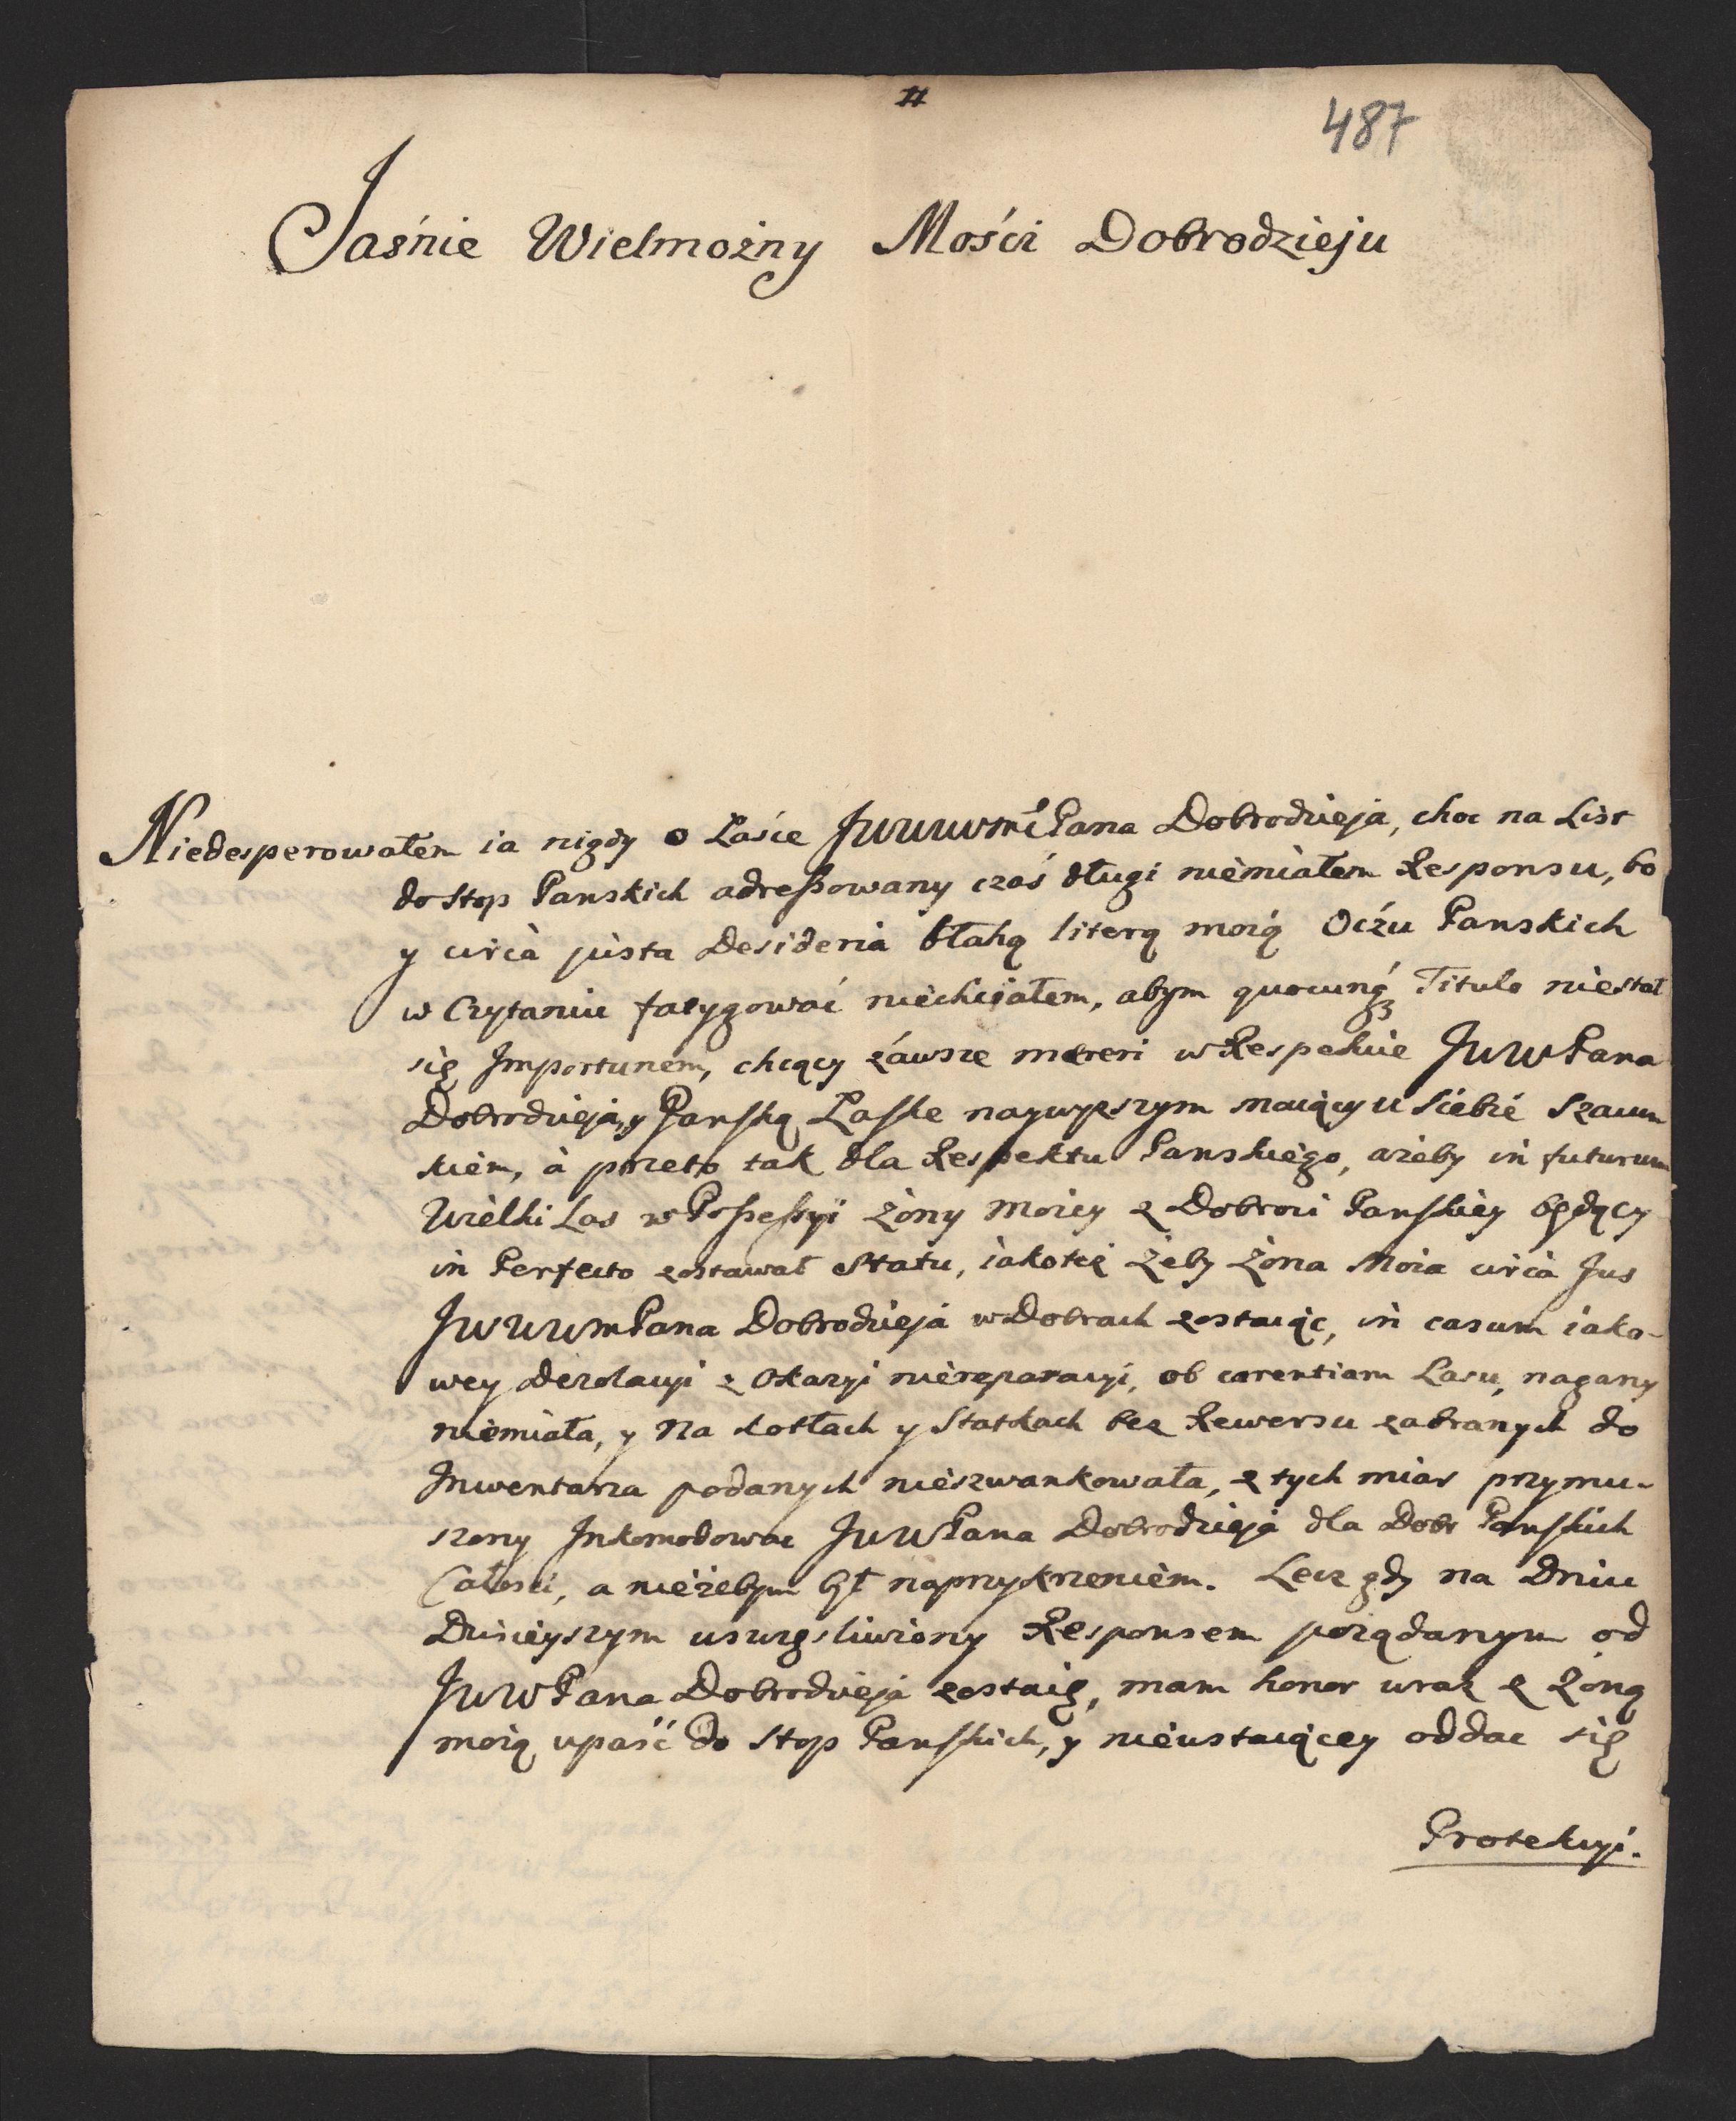 487
Jaśnie Wielmożny Mości Dobrodzieju
Niedesperowałem ia nigdy o Łasce JWWWmći Pana Dobrodzieja, choc na List
do Stop Panskich adreßowany czas długi niemiałem Responsu, bo
y circa justa Desideria błahą literą moią Oczu Panskich
w Czytaniu fatygować niechciałem, abym quocunq3 Titulo niestał
się Importunem, chcący zawsze mereri w Respekcie JWWPana
Dobrodzieja, y Panską Łaskę naywyższym maiący u Siebie Szacun
kiem, à przeto tak dla Respektu Panskiego, ażeby in futurum
Wielki Las w Poßeßyi żony moiey z Dobroci Panskiey będący
in Perfecto zostawał Statu, iakotez żeby żona Moia circa Jus
JWWWmPana Dobrodzieja w Dobrach zostaiąc, in casum iako-
wey Dezolacyi z Okazyi niereparacyi, ob carentiam Lasu, nagany
niemiała, y Na kotłach y Statkach bez Rewersu zabranych do
Inwentarza podanych nieszwankowała, z tych miar przymu-
szony Inkomodowac JWWPana Dobrodzieja dla Dobr Panskich
Całosci, a nieżebym był naprzykrzeniem. Lecz gdy na Dniu
Dzisieyszym uszczęsliwiony Responsem pożądanym od
JWWPana Dobrodzieja zostaię, mam honor wraz z żoną
moią upaść do Stop Panskich, y nieustaiącey oddac się
Protekcyi.